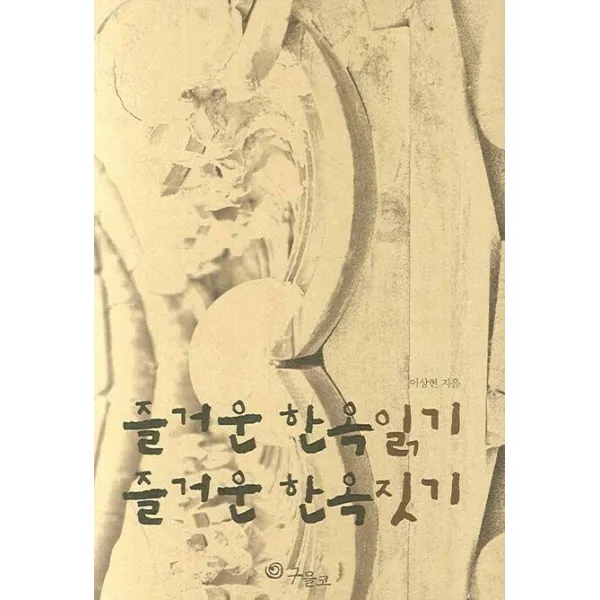 이상현 지음
즐거운 한옥읽기
즐거운 한옥짓기
그물코